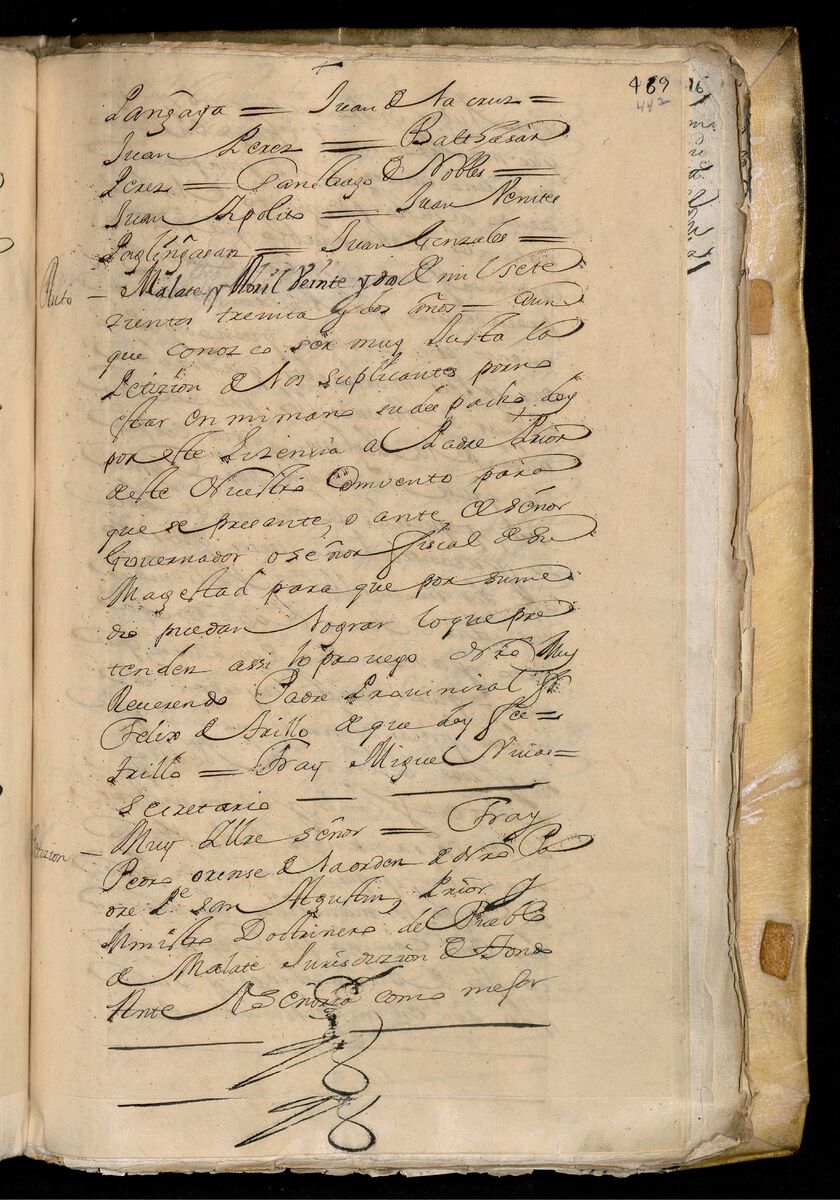 489
442
Pangaya = Juan de la cruz =
Juan Perez = Balthasar
Perez = Santhiago de Nobles =
Juan Apolito = Juan Venites
Juan Gonzales =
Auto — Malate y Abril veinte y dos de mil sete
zientos treinta y dos años =
que conosco ser muy Justa la
Petizion de los suplicantes
estar en mi mano su despacho doy
por este Lizencia al Padre Prior
deste Nuestro Convento para
que se presente, o ante el señor
Governador o señor fiscal de Su
Magestad para que por su me
dio puedan lograr lo que pre
tenden assi lo proveyo Nro Muy
Reverendo Padre Provinzial fr
Felix de trillo de que doy fee =
trillo = Fray Miguel Vivas =
secretario —
Petizion — Muy Illre señor = Fray
Pedro orense de la orden de Nro Pa
dre Pe san Agustin, Prior y
Ministro Doctrinero del Pueblo
de Malate Jurisdizion de tondo
Ante V Señoria como mejor